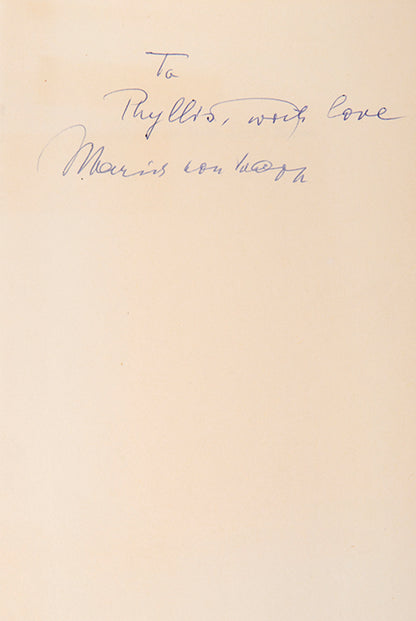 To
Phyllis, with love
Marius von